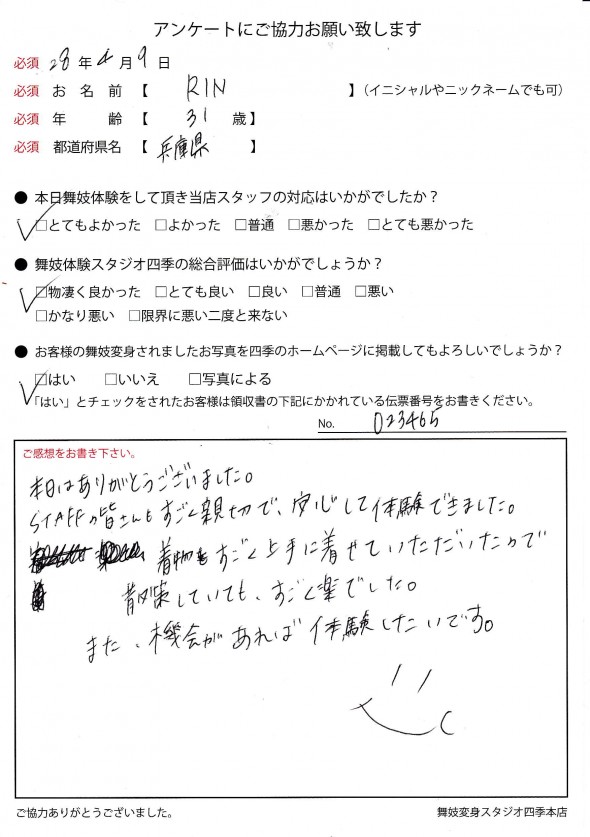 アンケートにご協力お願い致します
必須 28 年 4 月 9 日
必須 お 名 前 【 RIN 】(イニシャルやニックネームでも可)
必須 年 齢 【 31 歳】
必須 都道府県名 【 兵庫県 】
● 本日舞妓体験をして頂き当店スタッフの対応はいかがでしたか？
□とてもよかった □よかった □普通 □悪かった □とても悪かった
● 舞妓体験スタジオ四季の総合評価はいかがでしょうか？
□物凄く良かった □とても良い □良い □普通 □悪い
□かなり悪い □限界に悪い二度と来ない
● お客様の舞妓変身されましたお写真を四季のホームページに掲載してもよろしいでしょうか？
□はい □いいえ □写真による
「はい」とチェックをされたお客様は領収書の下記にかかれている伝票番号をお書きください。
No. 023465
ご感想をお書き下さい。
本日はありがとうございました。
STAFFの皆さんもすごく親切で、安心して体験できました。
着物もすごく上手に着せていただいたので
散策していても、すごく楽でした。
また、機会があれば体験したいです。
ご協力ありがとうございました。
舞妓変身スタジオ四季本店